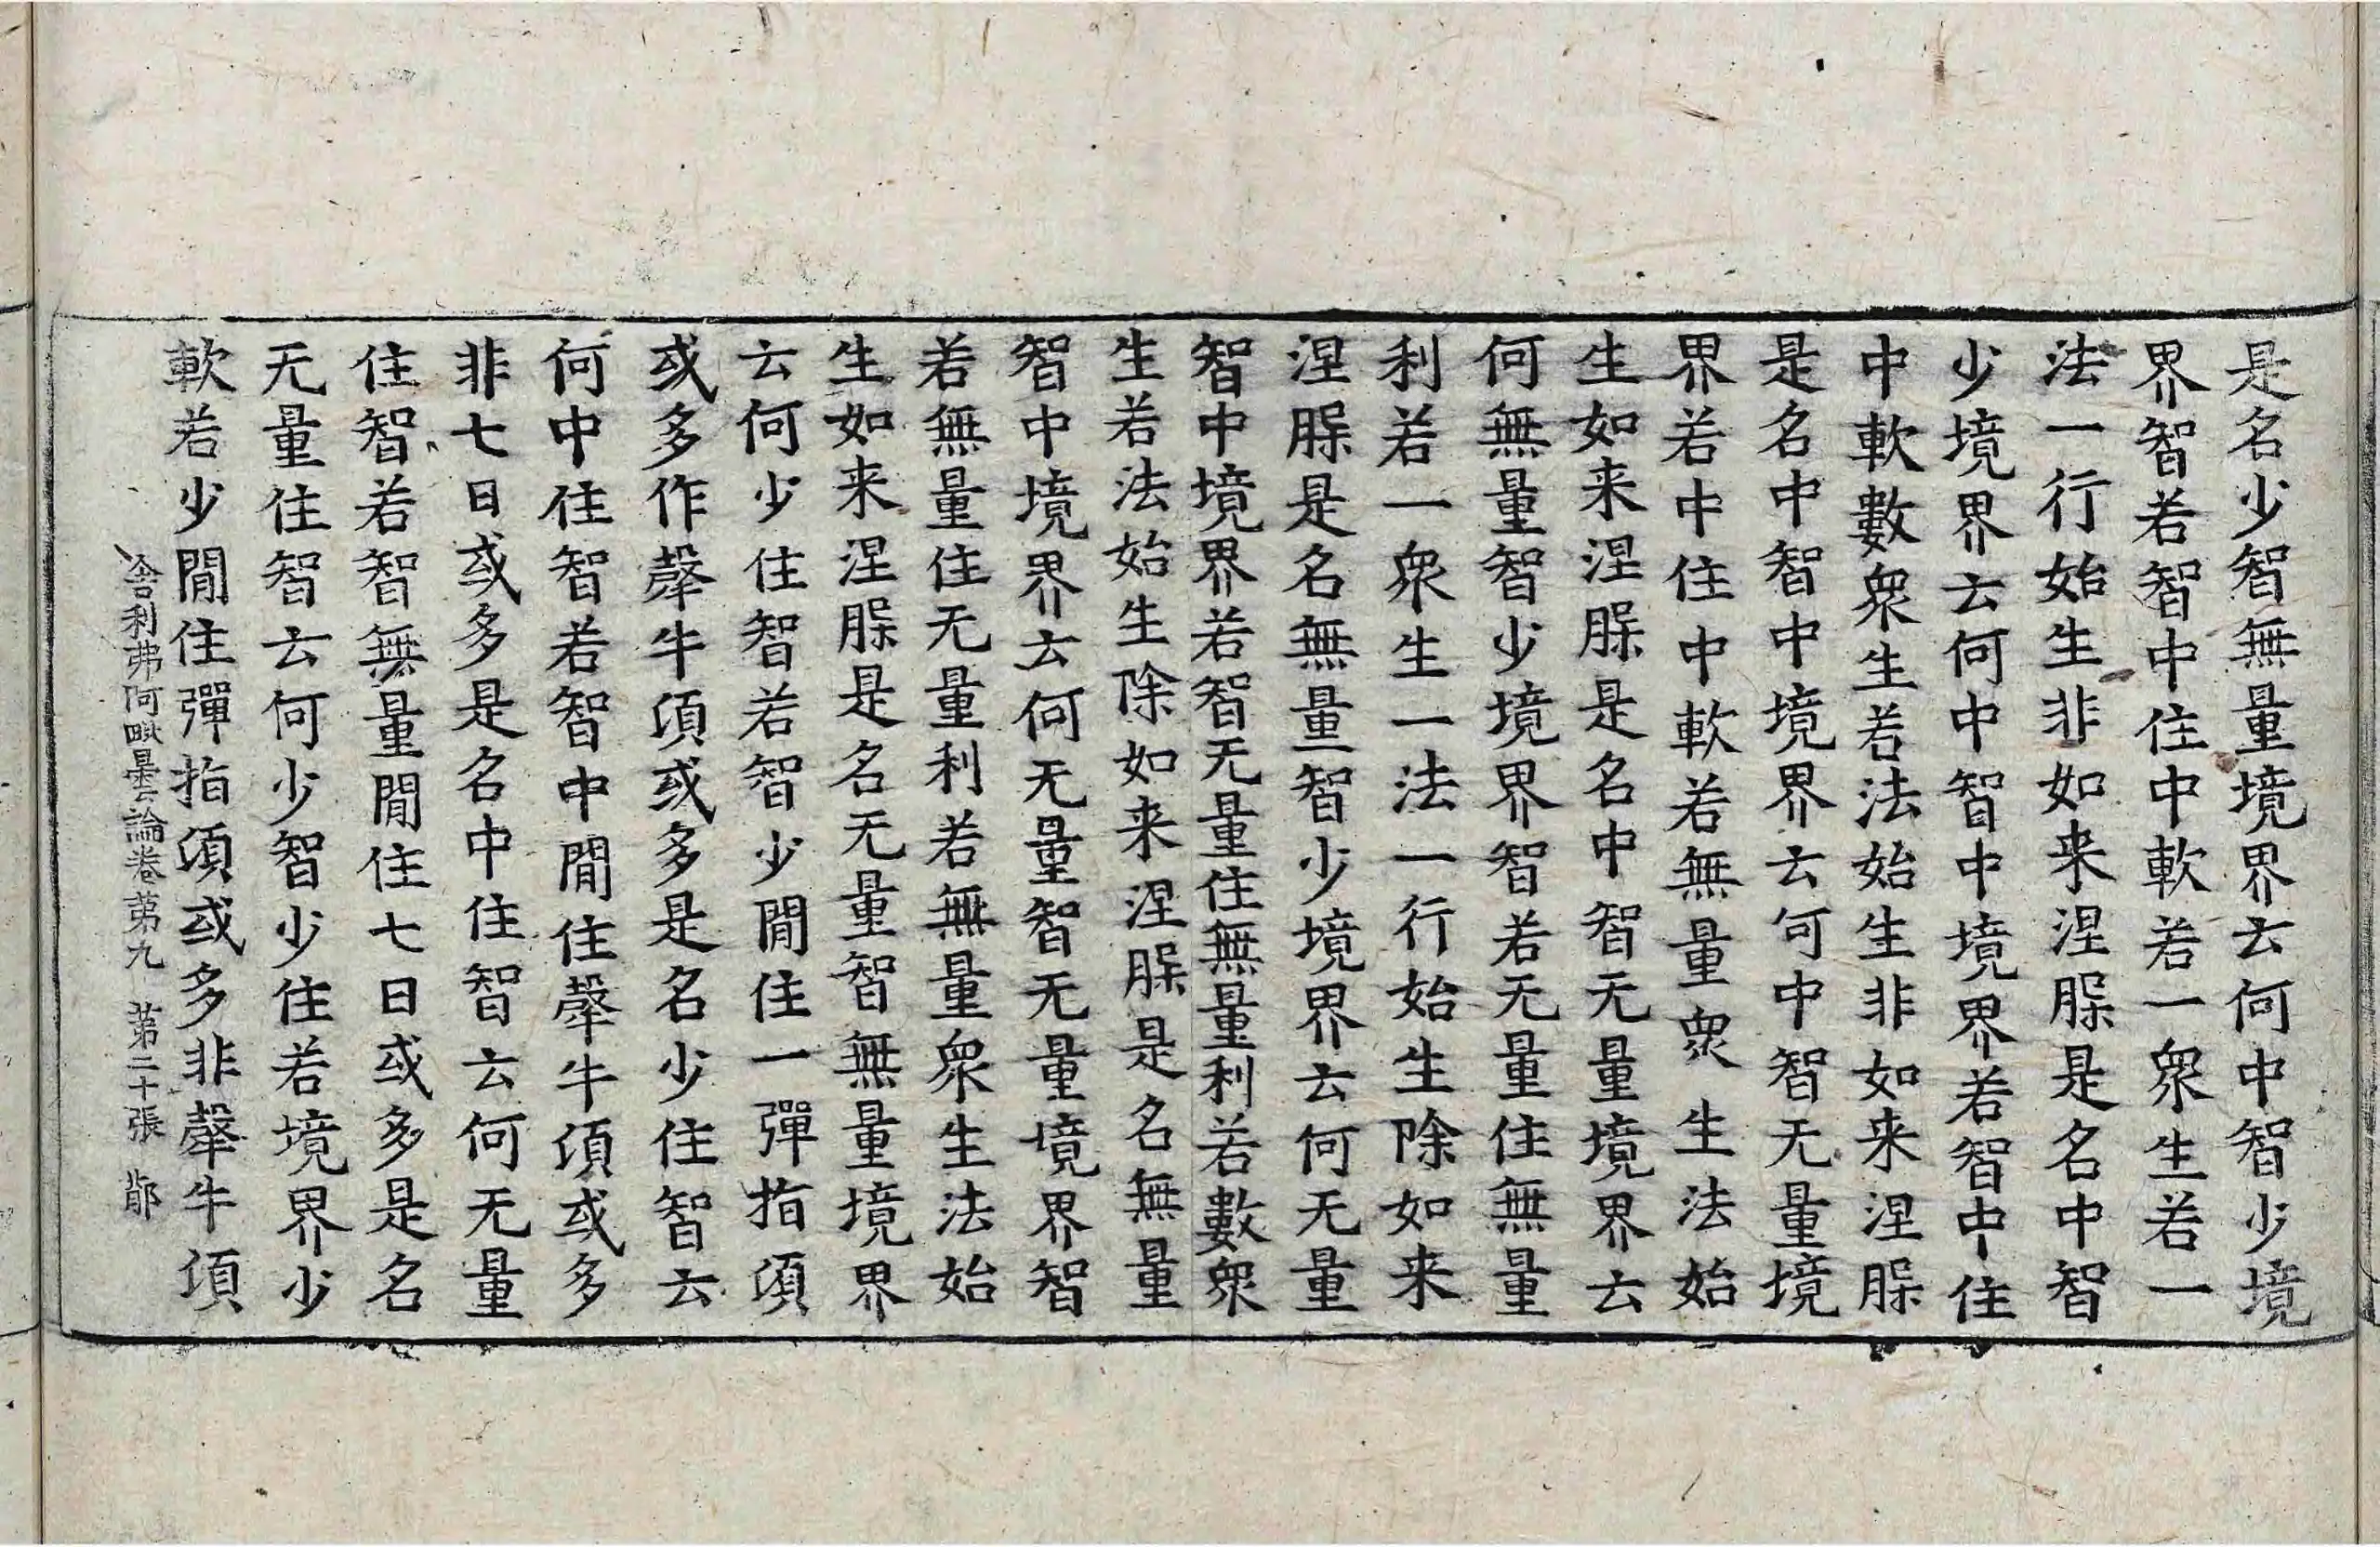 是名少智無量境界云何中智少境
界智若智中住中軟若一衆生若一
法一行始生非如来涅槃是名中智
少境界云何中智中境界若智中住
中軟數衆生若法始生非如来涅槃
是名中智中境界云何中智无量境
界若中住中軟若無量衆生法始
生如来涅槃是名中智无量境界云
何無量智少境界智若无量住無量
利若一衆生一法一行始生除如来
涅槃是名無量智少境界云何无量
智中境界若智无量住無量利若數衆
生若法始生除如来涅槃是名無量
智中境界云何无量智无量境界智
若無量住无量利若無量衆生法始
生如来涅槃是名无量智無量境界
云何少住智若智少閒住一彈指頃
或多作㲉牛頃或多是名少住智云
何中住智若智中閒住㲉牛頃或多
非七日或多是名中住智云何无量
住智若智無量閒住七日或多是名
无量住智云何少智少住若境界少
軟若少閒住彈指須或多非㲉牛頃
舍利弗阿毗曇論卷第九 第二十張 鄁